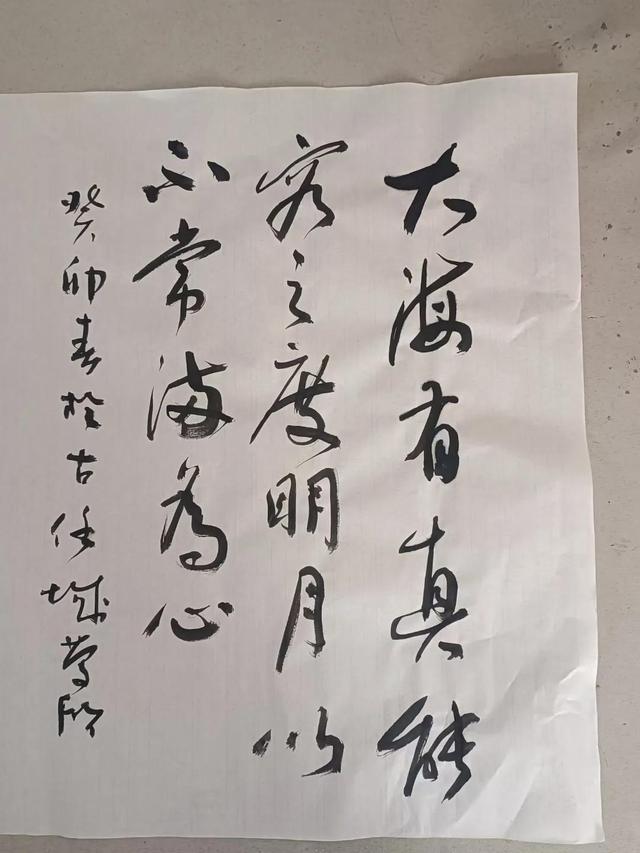 大海有真能
容之度明月以
不常满為心
癸卯春於古任城